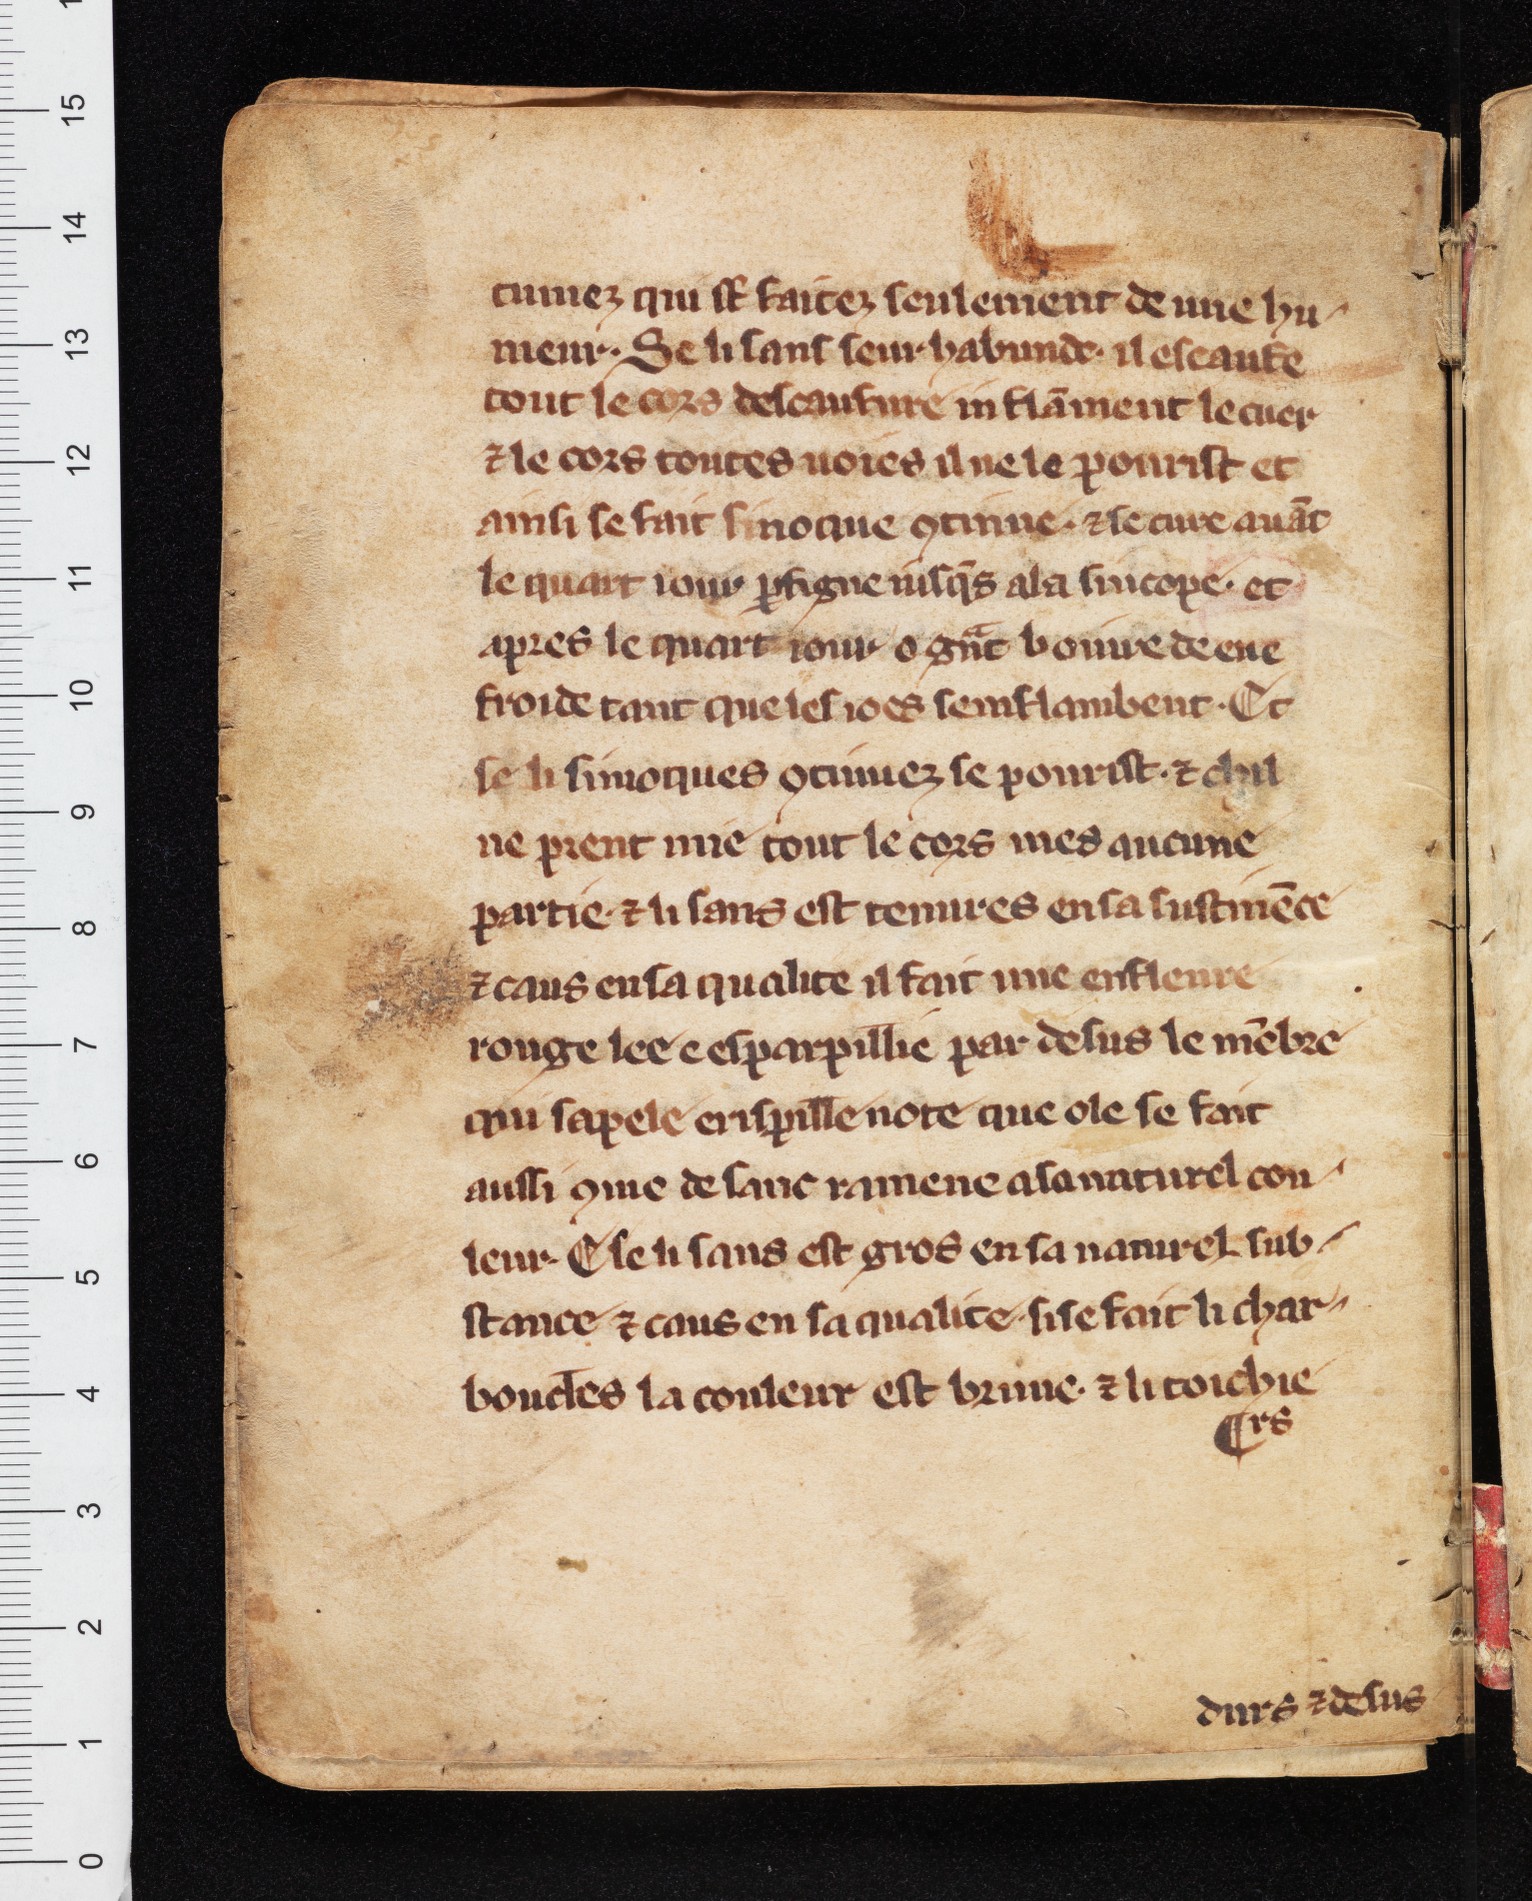 tinuez qui st̃ faitez seulement de une hu-
meur. Se li sans seur habunde. il escaufe
tout le cors descaufure inflãment le cuer
⁊ le cors toutes uoies il ne le pourist et
ainsi se fait sinoque ꝯtinue. ⁊ se cure auãt
le quart iour ꝑ figne iusq̃s a la sincope. et
apres le quart iour o gñt bouire de eue
froide tant que les ioes senflambent. Et
se li sinoques ꝯtinuez se pourist. ⁊ chil
ne prent mie tout le cors mes aucune
partie. ⁊ li sans est tenures en sa sustinẽce
⁊ caus en sa qualite il fait une enfleure
rouge lee e esparpillie par desus le mẽbre
qui sapele erispille note que ole se fait
aussi ꝯme de sanc ramene a sa naturel cou-
leur. E se li sans est gros en sa naturel sub-
stance ⁊ caus en sa qualite. si se fait li char-
boucles la couleur est brune. ⁊ li toichie
rs
durs ⁊ desus
0 1 2 3 4 5 6 7 8 9 10 11 12 13 14 15